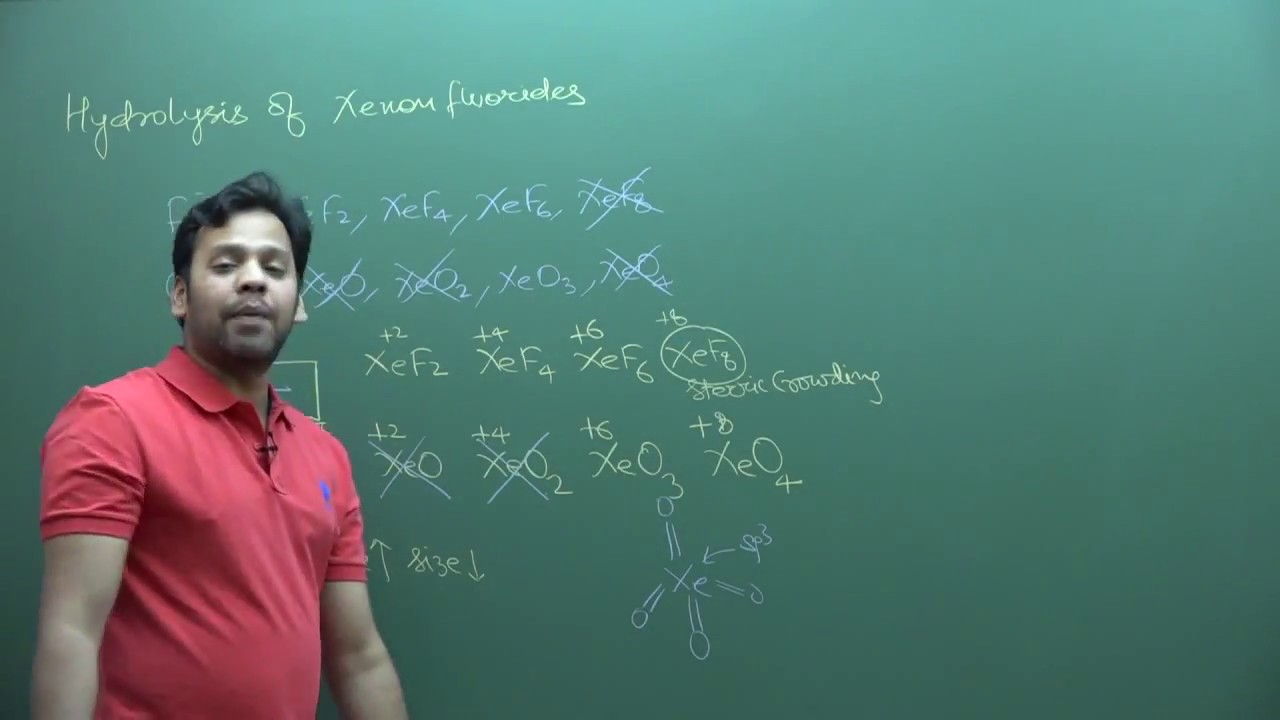 Hydrolysis of Xenon fluorides
F2, XeF4, XeF6, XeF8
XeO, XeO2, XeO3, XeO4
+2 +4 +6 +8
XeF2 XeF4 XeF6 XeF8
Steric Crowding
+2 +4 +6 +8
XeO XeO2 XeO3 XeO4
O
↑ size↓
sp3
Xe
O O
O